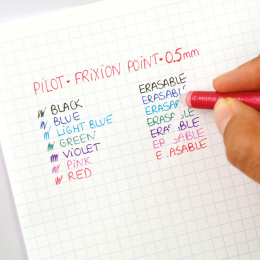 PILOT - FRIXION POINT - 0.5mm
BLACK
BLUE
LIGHT BLUE
GREEN
VIOLET
PINK
RED
ERASABLE
ERASABL
ERASAB
ERASABLE
ERA ABLE
ERAS ABLE
E ASABLE